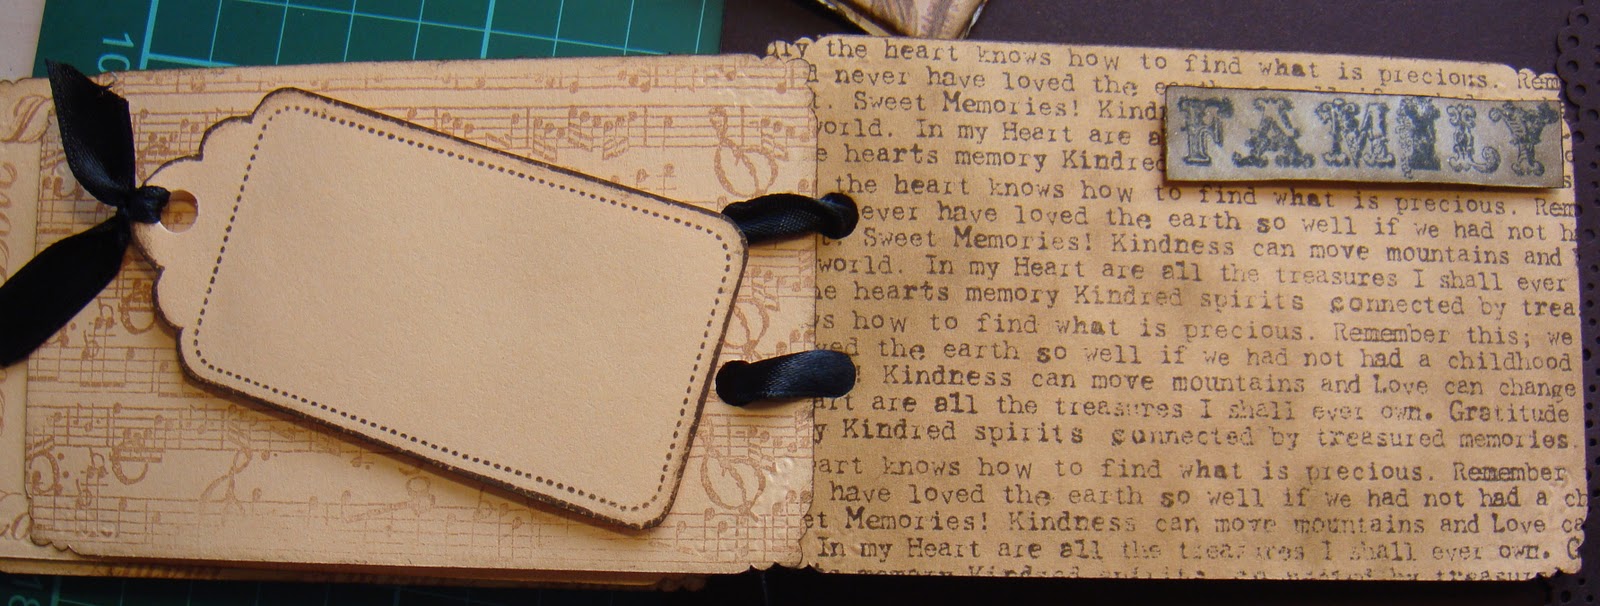 10
the heart knows how to find what is precious. Rem
never have loved the
Sweet Memories! Kind
world. In my Heart are a
hearts memory Kindred
FAMILY
the heart knows how to find what is precious. Rem
ever have loved the earth so well if we had not h
. Sweet Memories! Kindness can move mountains and
world. In my Heart are all the treasures I shall ever
e hearts memory Kindred spirits connected by trea
ws how to find what is precious. Remember this; we
ved the earth so well if we had not had a childhood
! Kindness can move mountains and Love can change
art are all the treasures I shall ever own. Gratitude
y Kindred spirits connected by treasured memories.
eart knows how to find what is precious. Remember
have loved the earth so well if we had not had a ch
et Memories! Kindness can move mountains and Love ca
In my Heart are all the treasures I shall ever own. G
memory Kindred spirits connected by treasur